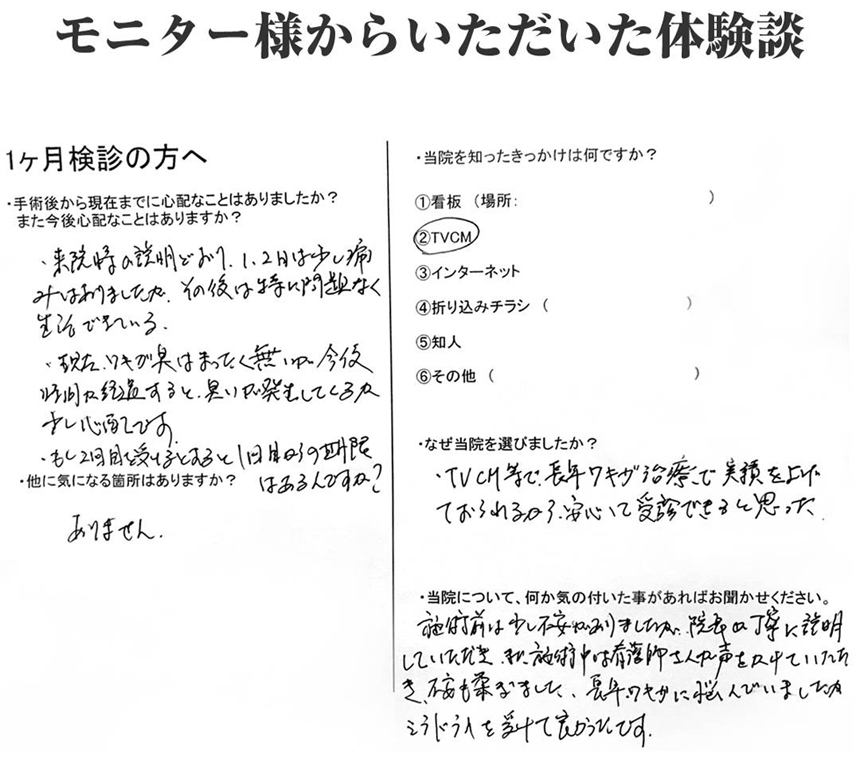 モニター様からいただいた体験談
1ヶ月検診の方へ
・手術後から現在までに心配なことはありましたか?
また今後心配なことはありますか?
・来院時の説明どおり、1、2日は少し痛
みはありましたが、その後は特に問題なく
生活できている。
・現在、ワキガ臭はまったく無いが、今後
時間が経過すると、臭いが発生してくるか
少し心配です。
・もし2回目を受けるとすると1回目からの期限
はあるんですか?
・他に気になる箇所はありますか?
ありません。
・当院を知ったきっかけは何ですか?
①看板 (場所: )
②TVCM
③インターネット
④折り込みチラシ ( )
⑤知人
⑥その他 ( )
・なぜ当院を選びましたか?
・TVCM等で、長年ワキガ治療で実績を上げ
ておられるから、安心して受診できると思った。
・当院について、何か気の付いた事があればお聞かせください。
施術前は少し不安がありましたが、院長が丁寧に説明
していただき、又、施術中は看護師さんが声をかけていただ
き、不安も柔ぎました。長年ワキガに悩んでいましたが
ミラドライを受けて良かったです。